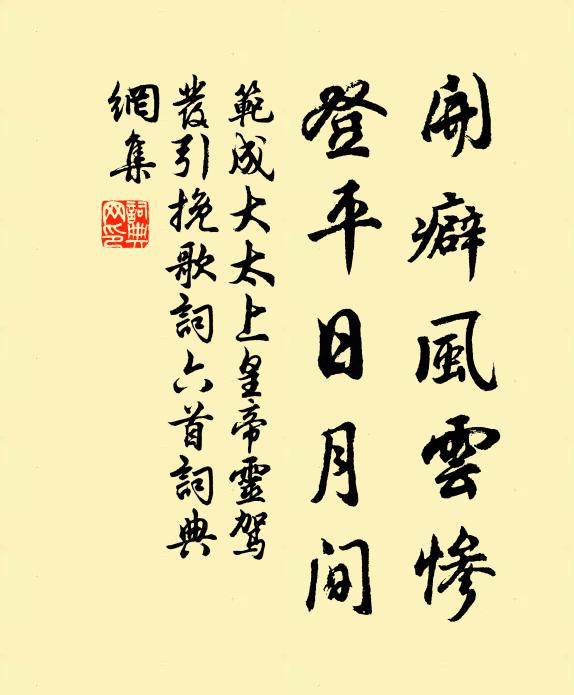 開癖風雲慘
登平日月间
範成大太上皇帝靈駕
發引挽歌詞六首詞典
網集
詞典网印